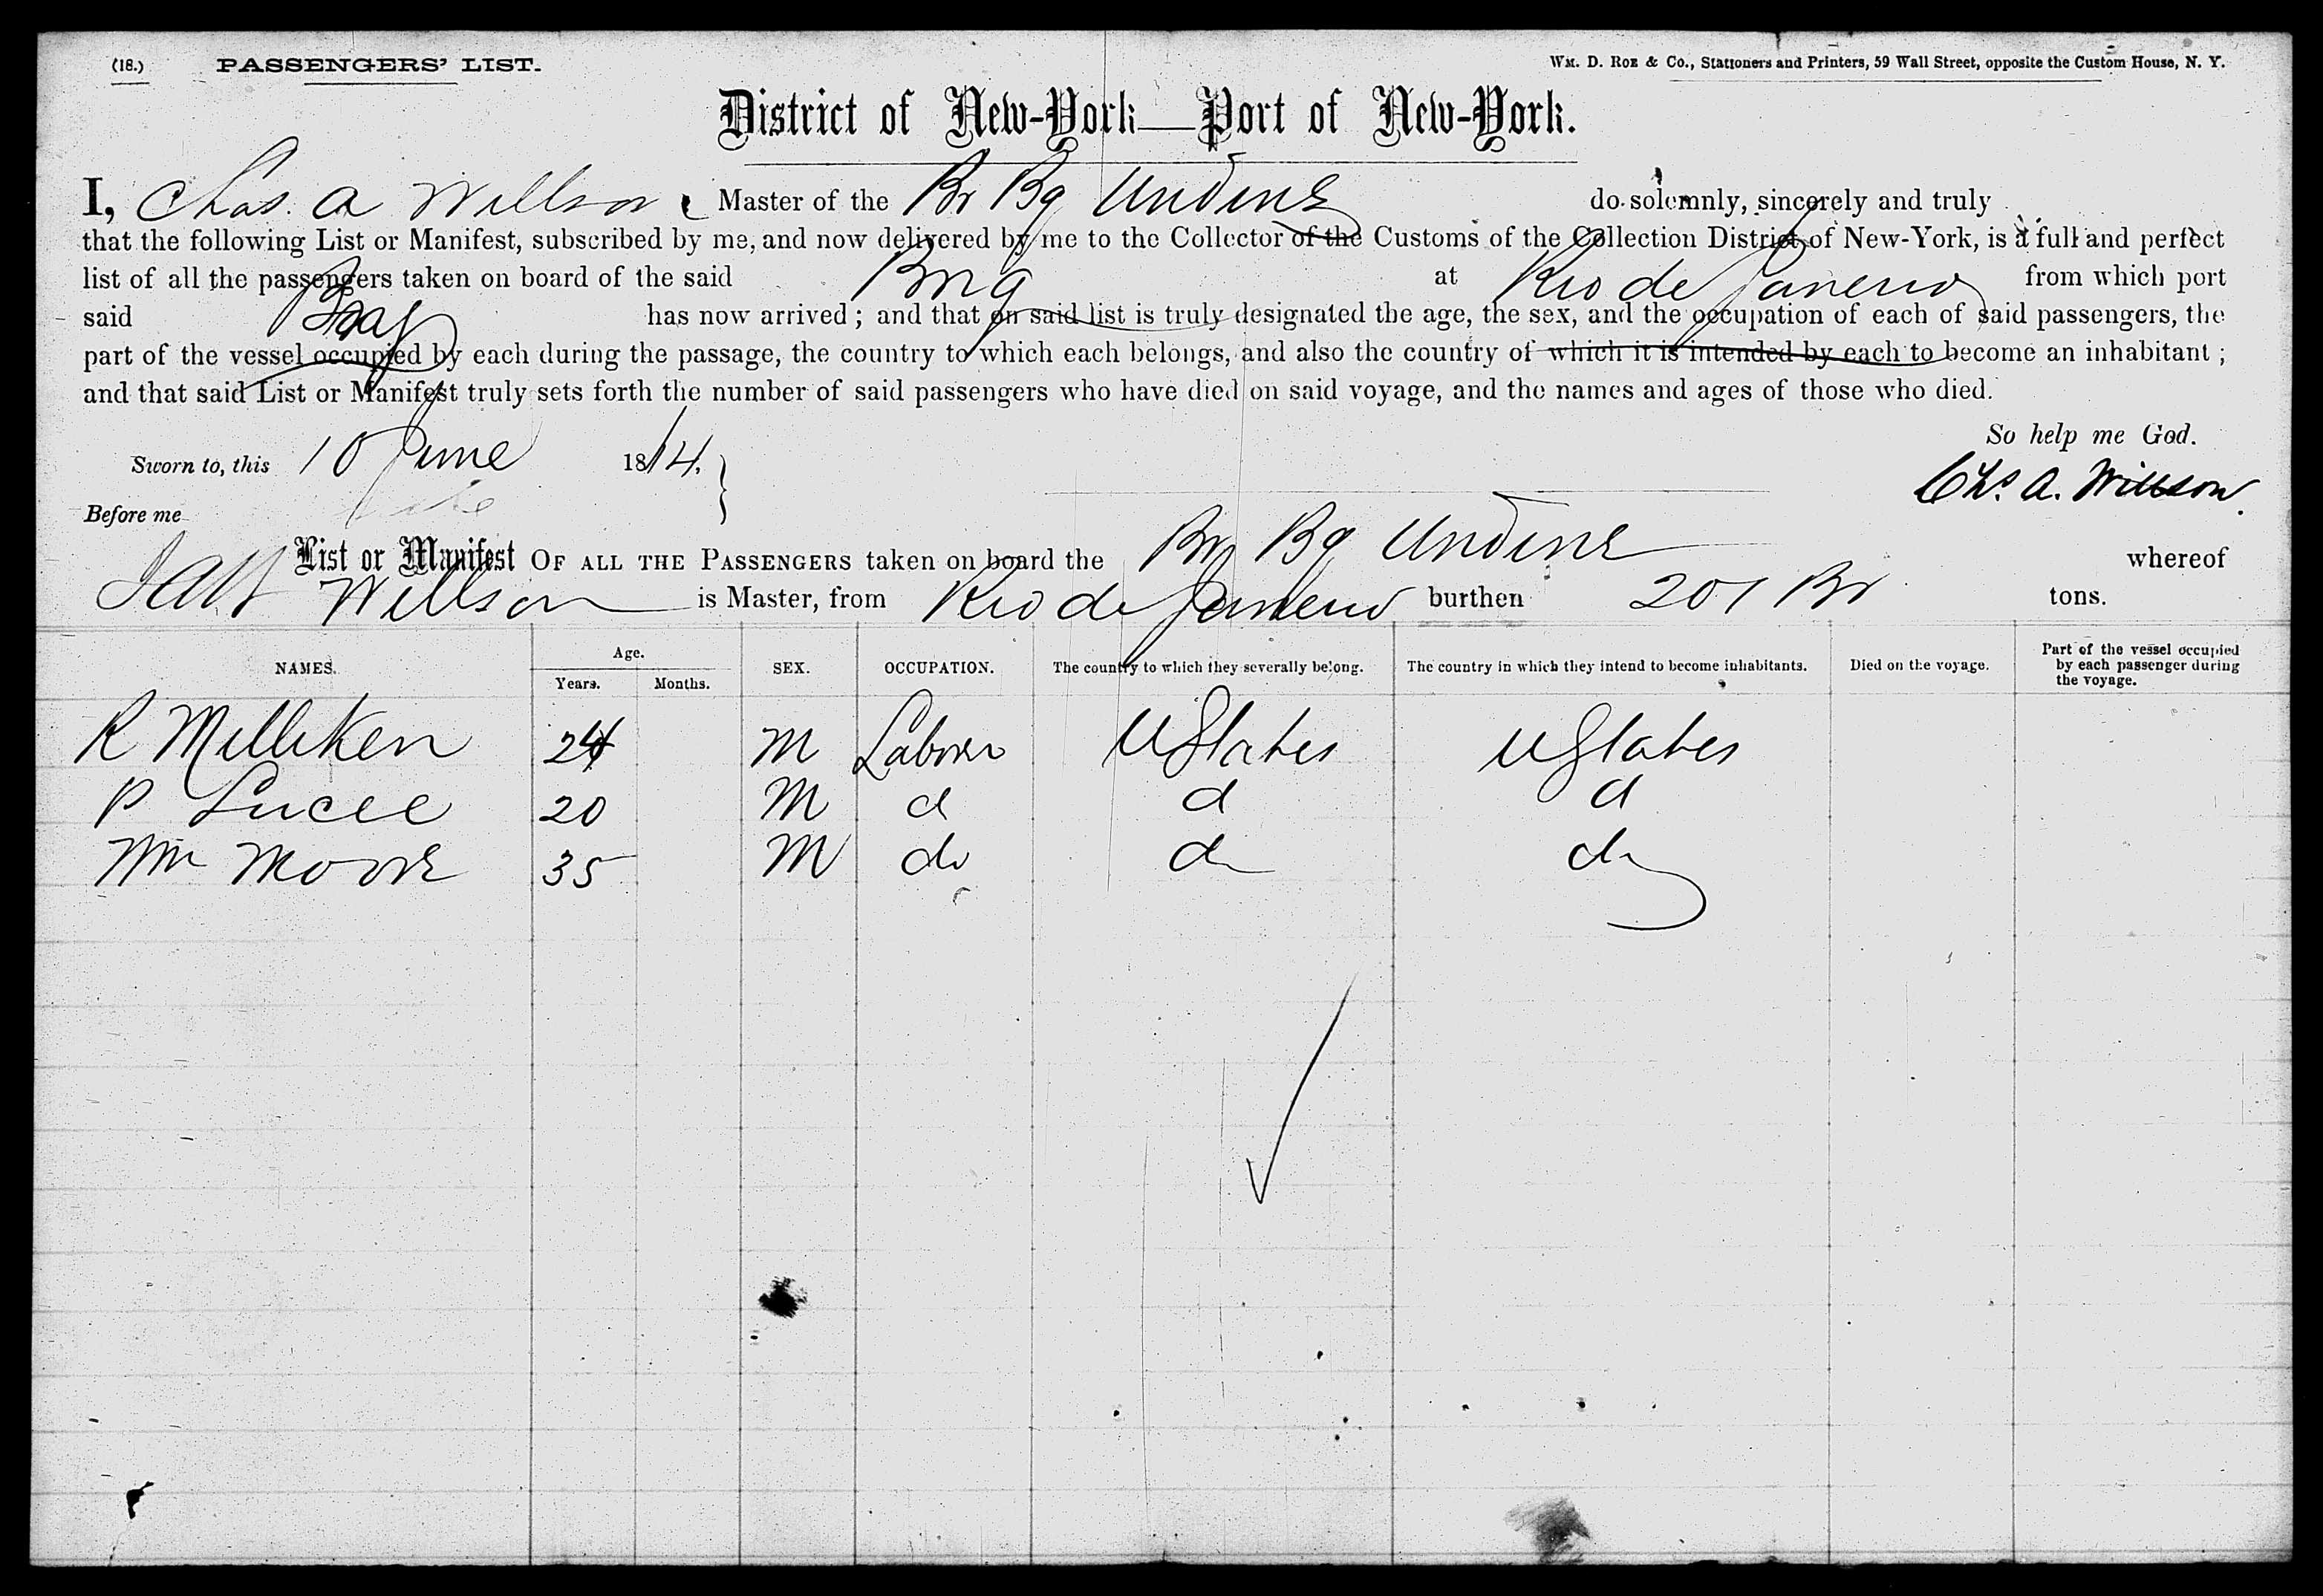 (18.) PASSENGERS' LIST. Wm. D. Roe & Co., Stationers and Printers, 59 Wall Street, opposite the Custom House, N. Y.
District of New-York—Port of New-York.
I, Chas. A Willson Master of the Br Bg Undine do solemnly, sincerely and truly
that the following List or Manifest, subscribed by me, and now delivered by me to the Collector of the Customs of the Collection District of New-York, is a full and perfect
list of all the passengers taken on board of the said Brig at Rio de Janeiro from which port
said has now arrived; and that on said list is truly designated the age, the sex, and the occupation of each of said passengers, the
part of the vessel occupied by each during the passage, the country to which each belongs, and also the country of which it is intended by each to become an inhabitant;
and that said List or Manifest truly sets forth the number of said passengers who have died on said voyage, and the names and ages of those who died.
So help me God.
Sworn to, this 10 June 18 4.
Chs. A. Willson.
Before me
List or Manifest OF ALL THE PASSENGERS taken on board the Br Bg Undine whereof
Willson is Master, from Rio de Janeiro burthen 201 Br tons.
NAMES. Age. Years. Months. SEX. OCCUPATION. The country to which they severally belong. The country in which they intend to become inhabitants. Died on the voyage. Part of the vessel occupied by each passenger during the voyage.
R Milliken 24 M Laborer U States U States
P Lucee 20 M d d d
Wm Moore 35 M do do do